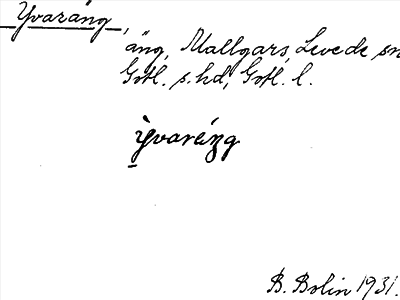 Yvaräng,
äng, Mallgars, Levede sn
Gotl. s. hd, Gotl. l.
B. Bolin 1931.